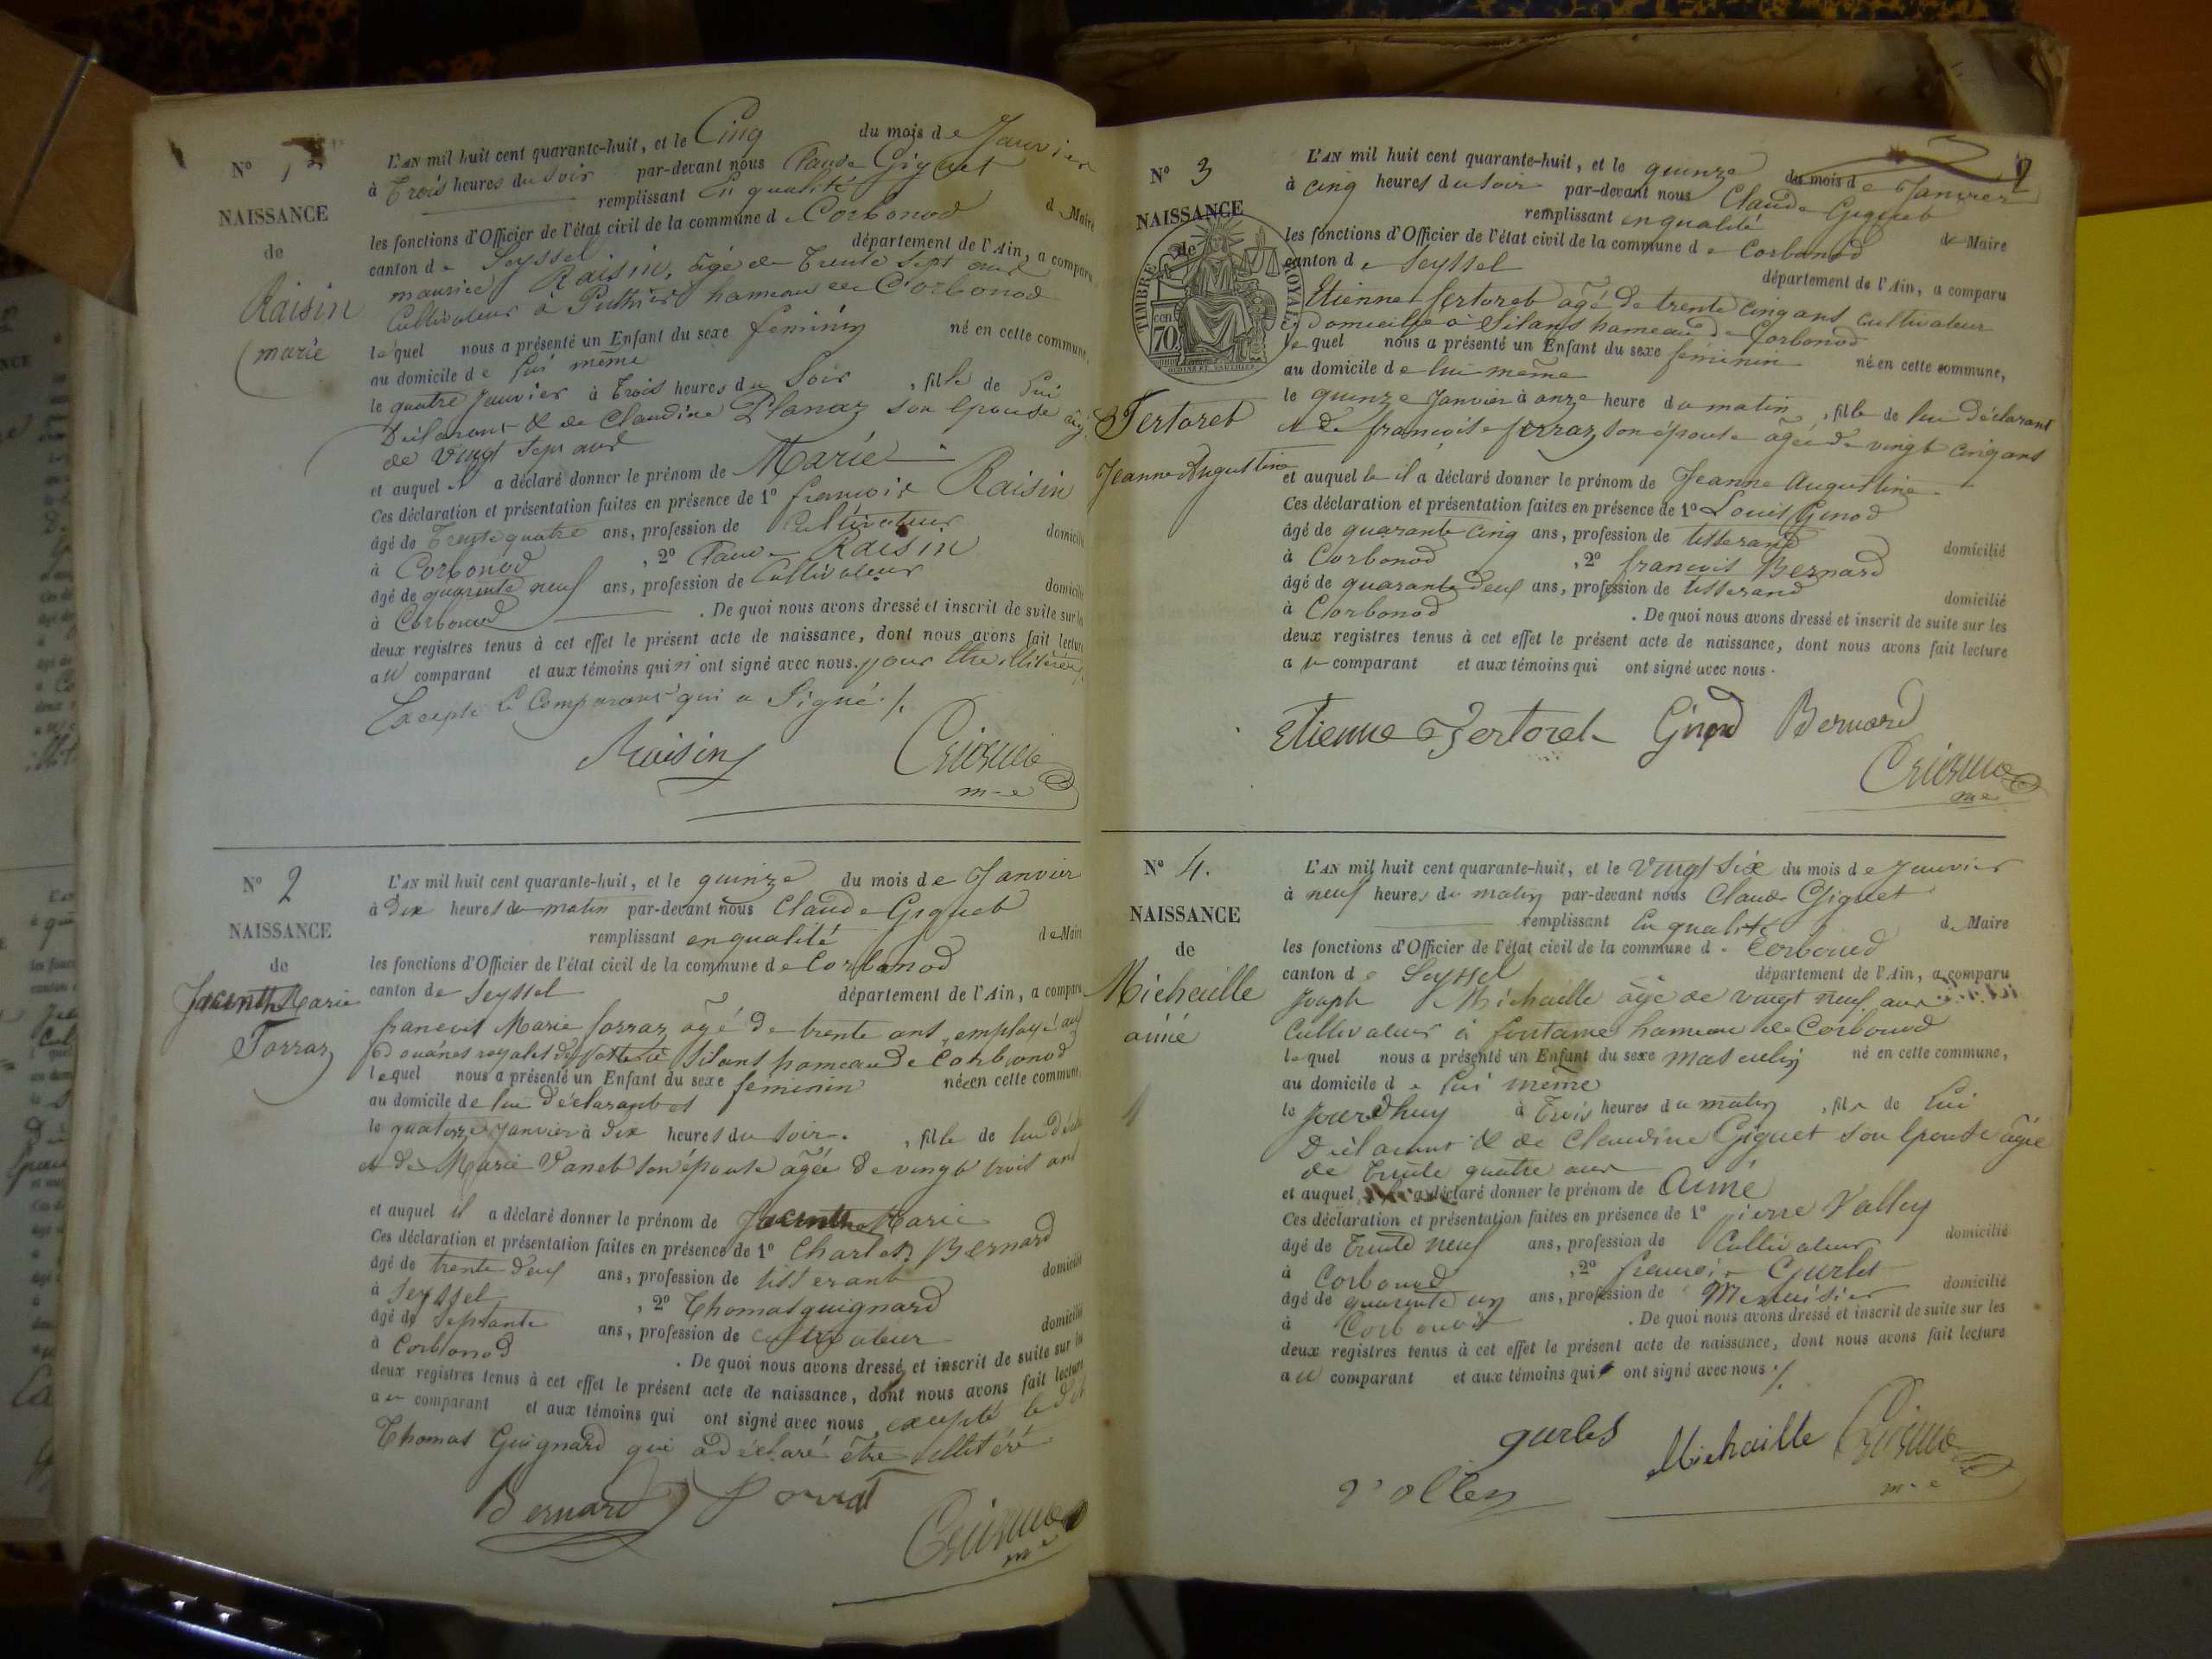 N° 1
NAISSANCE
de
Raisin
marie
L'AN mil huit cent quarante-huit, et le Cinq du mois de Janvier
à Trois heures du Soir par-devant nous Claude Giguet
remplissant En qualité de Maire
les fonctions d'Officier de l'état civil de la commune de Corbonod
canton de Seyssel département de l'Ain, a comparu
maurice Raisin, âgé de Trente Sept ans
Cultivateur à Puthier hameau de Corbonod
lequel nous a présenté un Enfant du sexe feminin né en cette commune,
au domicile de lui même
le quatre Janvier à Trois heures du Soir, fille de Lui
Déclarant & de Claudine Planaz son Epouse âgé
de Vingt Sept ans
et auquel il a déclaré donner le prénom de Marie
Ces déclaration et présentation faites en présence de 1° françois Raisin
âgé de Trente quatre ans, profession de Cultivateur domicilié
à Corbonod, 2° Claude Raisin
âgé de quarante neuf ans, profession de Cultivateur domicilié
à Corbonod. De quoi nous avons dressé et inscrit de suite sur les
deux registres tenus à cet effet le présent acte de naissance, dont nous avons fait lecture
au comparant et aux témoins qui n'ont signé avec nous. pour être illitérés
Excepté le Comparant qui a Signé ./.
Raisin Giguet
m-e
N° 2
NAISSANCE
de
Jacinthe Marie
Forraz
L'AN mil huit cent quarante-huit, et le quinze du mois de Janvier
à dix heures du matin par-devant nous Claude Giguet
remplissant en qualité de Maire
les fonctions d'Officier de l'état civil de la commune de Corbonod
canton de Seyssel département de l'Ain, a comparu
francois Marie forraz âgé de trente ans, employé aux
douânes royales de Silans hameau de Corbonod
lequel nous a présenté un Enfant du sexe feminin née en cette commune,
au domicile de lui déclarant et
le quatorze Janvier à dix heures du Soir., fille de lui décla
et de Marie Vanet son épouse âgée de vingt trois ans
et auquel il a déclaré donner le prénom de Jacinthe Marie
Ces déclaration et présentation faites en présence de 1° Charles Bernard
âgé de trente deux ans, profession de tisserant domicilié
à Seyssel, 2° Thomas guignard
âgé de Septante ans, profession de cultivateur domicilié
à Corbonod. De quoi nous avons dressé et inscrit de suite sur les
deux registres tenus à cet effet le présent acte de naissance, dont nous avons fait lecture
au comparant et aux témoins qui ont signé avec nous excepté le dit
Thomas Guignard qui a déclaré être illitéré
Bernard forrat Giguet
m-e
2
N° 3
NAISSANCE
de
TIMBRE ROYAL
70 cen
Fertoret
Jeanne Augustine
L'AN mil huit cent quarante-huit, et le quinze du mois de Janvier
à cinq heures du soir par-devant nous Claude Giguet
remplissant en qualité de Maire
les fonctions d'Officier de l'état civil de la commune de Corbonod
canton de Seyssel département de l'Ain, a comparu
Etienne fertoret âgé de trente cinq ans cultivateur
domicilié à Silans hameau de Corbonod
lequel nous a présenté un Enfant du sexe féminin né en cette commune,
au domicile de lui même
le quinze Janvier à onze heure du matin, fille de lui déclarant
et de françoise ferraz son épouse âgée de vingt cinq ans
et auquel le il a déclaré donner le prénom de Jeanne Augustine
Ces déclaration et présentation faites en présence de 1° Louis Ginod
âgé de quarante cinq ans, profession de tisserand domicilié
à Corbonod, 2° françois Bernard
âgé de quarante deux ans, profession de tisserand domicilié
à Corbonod. De quoi nous avons dressé et inscrit de suite sur les
deux registres tenus à cet effet le présent acte de naissance, dont nous avons fait lecture
au comparant et aux témoins qui ont signé avec nous.
Etienne Fertoret Ginod Bernard
Giguet
m-e
N° 4.
NAISSANCE
de
Michaille
aimé
L'AN mil huit cent quarante-huit, et le Vingt Six du mois de Janvier
à neuf heures du matin par-devant nous Claude Giguet
remplissant En qualité de Maire
les fonctions d'Officier de l'état civil de la commune d. Corbonod
canton de Seyssel département de l'Ain, a comparu
Joseph Michaille âgé de Vingt neuf ans
Cultivateur à fontaine hameau de Corbonod
lequel nous a présenté un Enfant du sexe masculin né en cette commune,
au domicile de lui même
le Jourdhuy à Trois heures du matin, fils de Lui
Déclarant & de Claudine Giguet Son Epouse âgée
de Trente quatre ans
et auquel a déclaré donner le prénom de Aimé
Ces déclaration et présentation faites en présence de 1° pierre Valley
âgé de Trente neuf ans, profession de Cultivateur domicilié
à Corbonod, 2° françois Gurlet
âgé de quarante un ans, profession de Menuisier domicilié
à Corbonod. De quoi nous avons dressé et inscrit de suite sur les
deux registres tenus à cet effet le présent acte de naissance, dont nous avons fait lecture
au comparant et aux témoins qui ont signé avec nous ./.
gurles Michaille Giguet
m-e